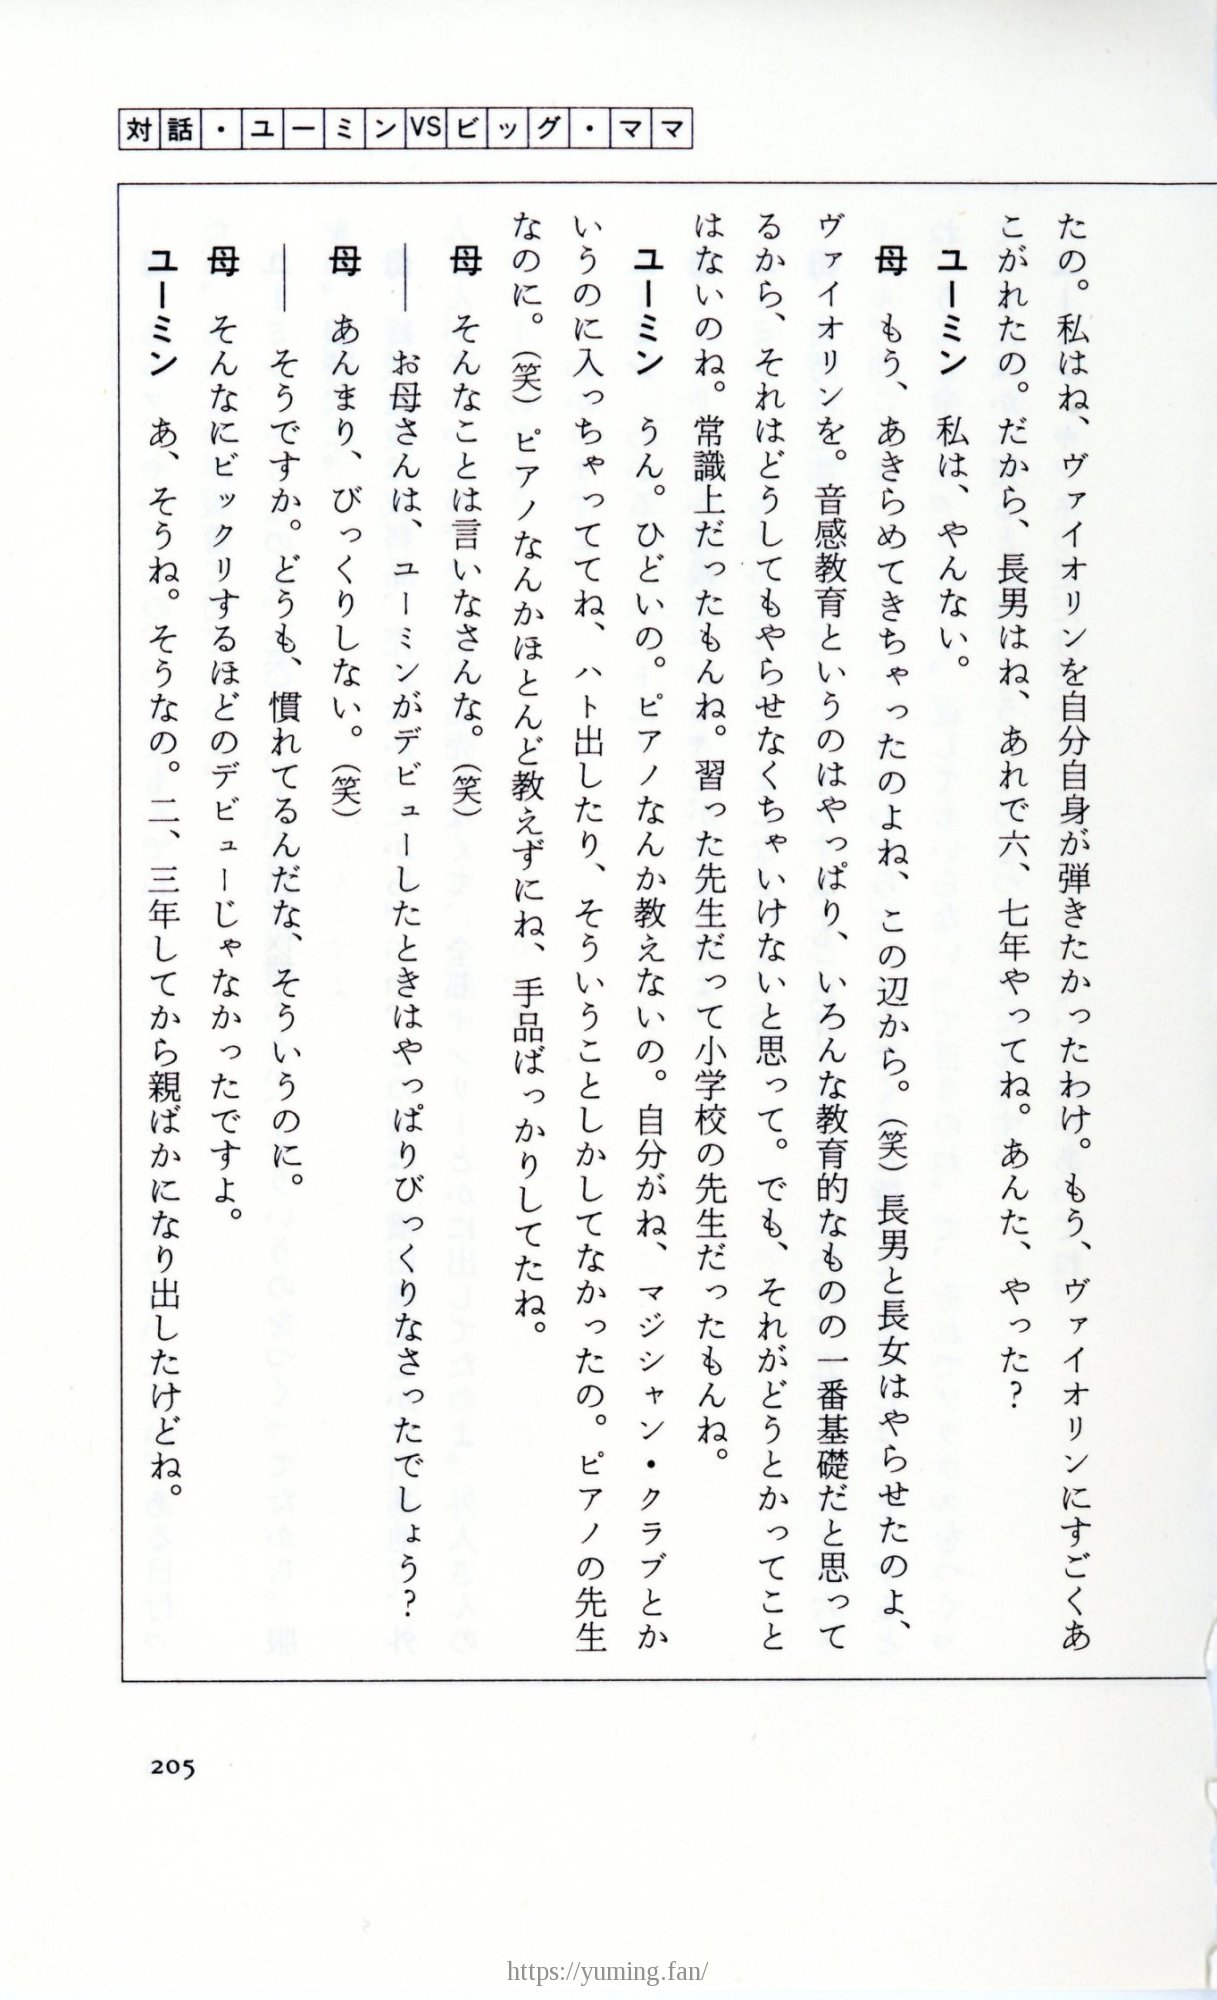 対話・ユーミンVSビッグ・ママ
たの。私はね、ヴァイオリンを自分自身が弾きたかったわけ。もう、ヴァイオリンにすごくあ
こがれたの。だから、長男はね、あれで六、七年やってね。あんた、やった?
ユーミン　私は、やんない。
母　もう、あきらめてきちゃったのよね、この辺から。(笑)長男と長女はやらせたのよ、
ヴァイオリンを。音感教育というのはやっぱり、いろんな教育的なものの一番基礎だと思って
るから、それはどうしてもやらせなくちゃいけないと思って。でも、それがどうとかってこと
はないのね。常識上だったもんね。習った先生だって小学校の先生だったもんね。
ユーミン　うん。ひどいの。ピアノなんか教えないの。自分がね、マジシャン・クラブとか
いうのに入っちゃっててね、ハト出したり、そういうことしかしてなかったの。ピアノの先生
なのに。(笑)ピアノなんかほとんど教えずにね、手品ばっかりしてたね。
母　そんなことは言いなさんな。(笑)
――　お母さんは、ユーミンがデビューしたときはやっぱりびっくりなさったでしょう?
母　あんまり、びっくりしない。(笑)
――　そうですか。どうも、慣れてるんだな、そういうのに。
母　そんなにビックリするほどのデビューじゃなかったですよ。
ユーミン　あ、そうね。そうなの。二、三年してから親ばかになり出したけどね。
205
https://yuming.fan/